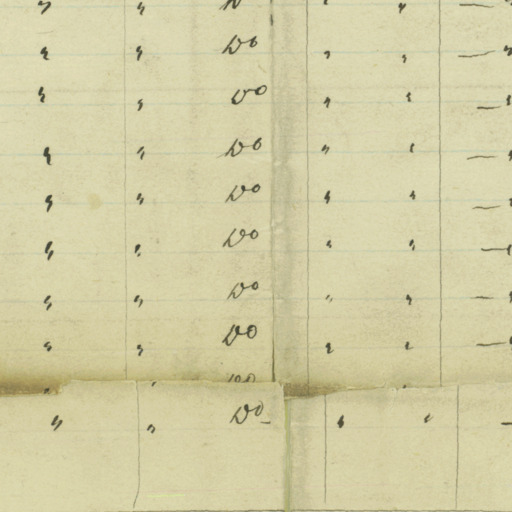 " " Do " " — "
" " Do " " — "
" " Do " " — "
" " Do " " — "
" " Do " " — "
" " Do " " — "
" " Do " " — "
" " Do " " — "
" " Do " " —